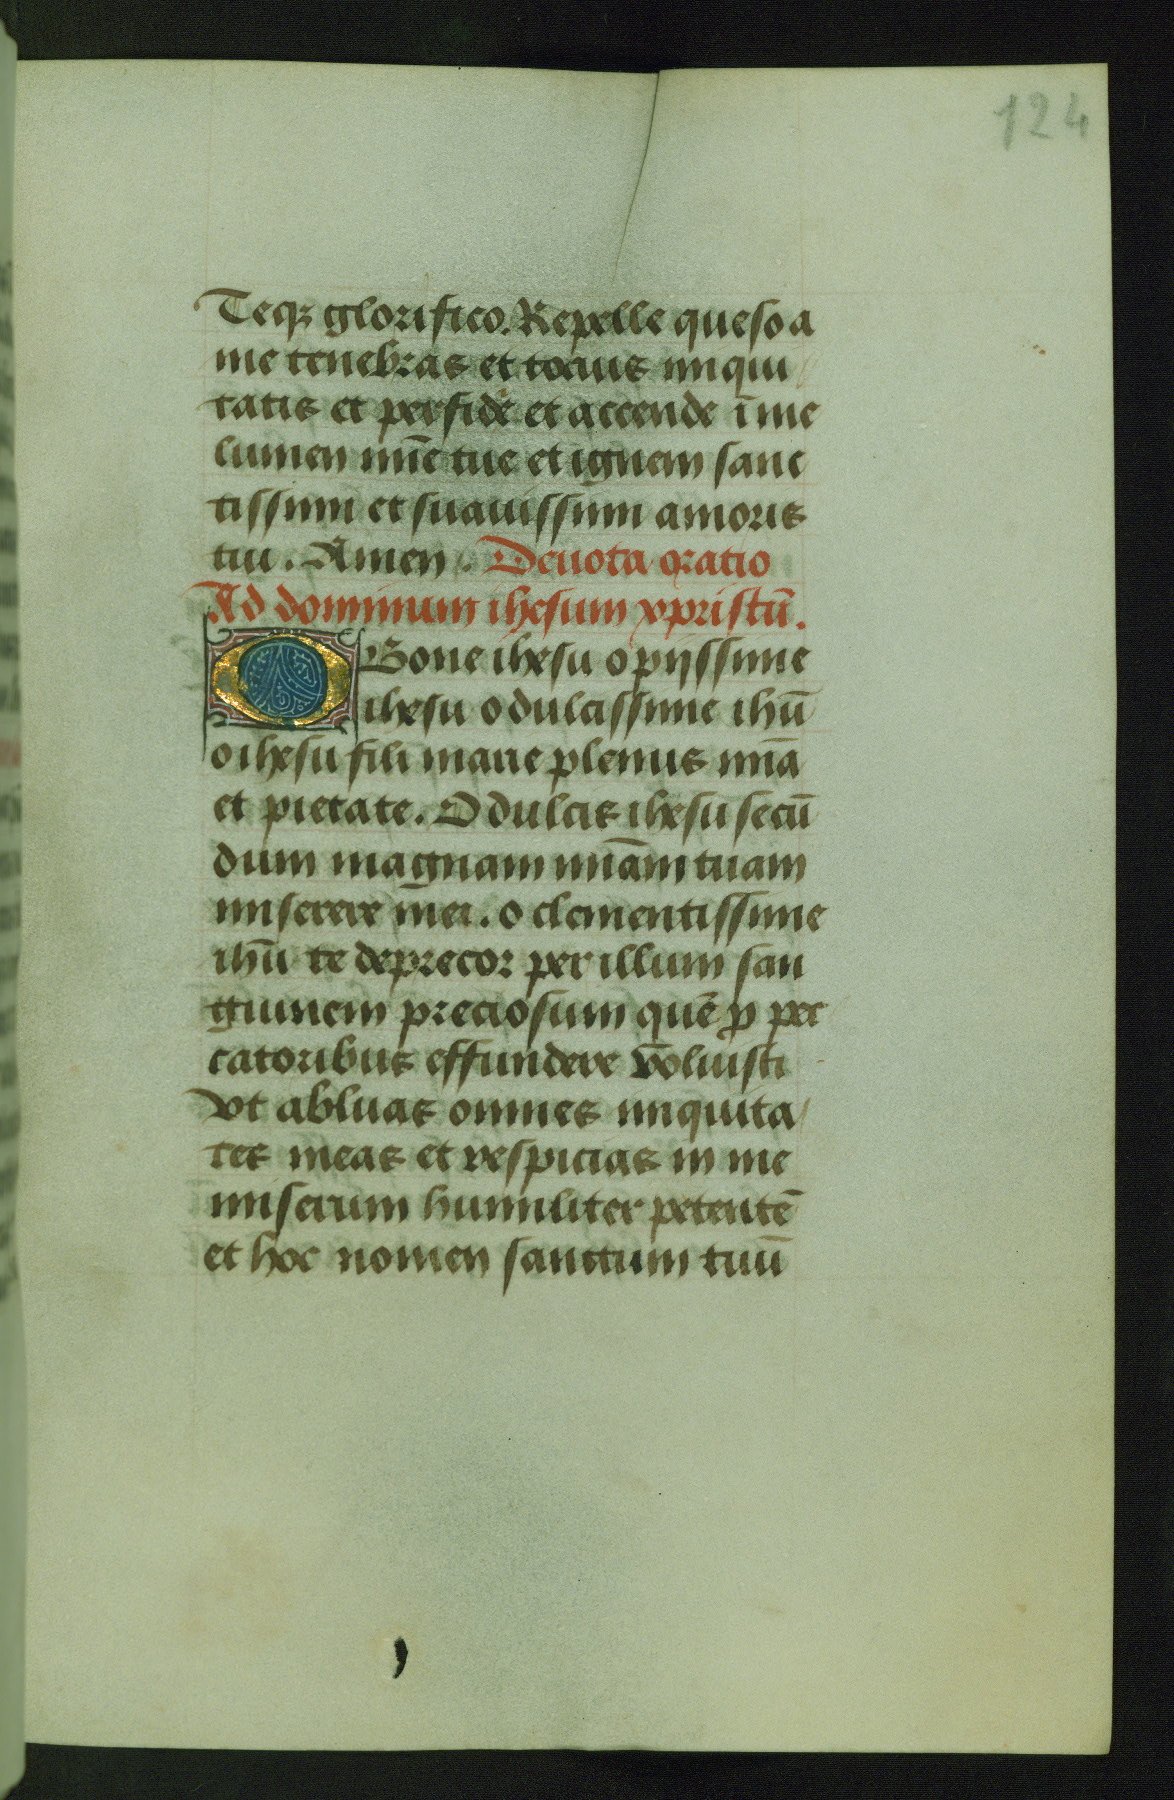 124
Teqꝫ glorifico. Repelle queso a
me tenebras et tocius iniqui
tatis et perfidẽ et accende ĩ me
lumen mĩe tue et ignem sanc
tissim et suauissim amoris
tui. Amen. Deuota oratio
Ad dominum ihesum xpristũ.
O Bone ihesu o pijssime
ihesu o dulcissime ihũ
o ihesu fili marie plenus mĩa
et pietate. O dulcis ihesu secũ
dum magnam miãm tuam
miserere mei. o clementissime
ihũ te deprecor per illum san
guinem preciosum quẽ ꝓ pec
catoribus effundere voluisti
vt abluas omnes iniquita
tes meas et respicias in me
miserum humiliter petentẽ
et hoc nomen sanctum tuũ